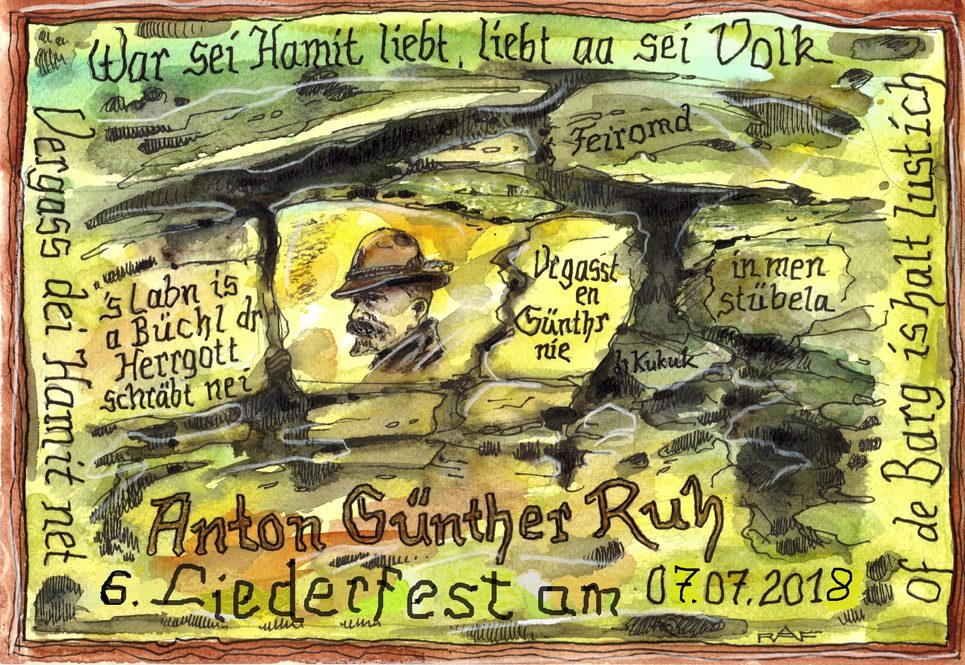 War sei Hamit liebt, liebt aa sei Volk
Vergass dei Hamit net
Feiromd
's Labn is
a Büchl dr
Herrgott
schräbt nei
Vrgasst
en
Günthr
nie
in men
stübela
dr Kukuk
of de Barg is halt lustich
Anton Günther Ruh
6. Liederfest am 07.07.2018
RAF